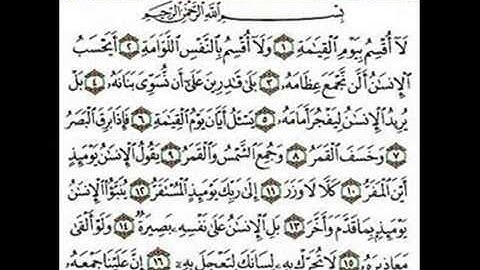 بِسْمِ اللَّهِ الرَّحْمَٰنِ الرَّحِيمِ
لَآ أُقْسِمُ بِيَوْمِ الْقِيَٰمَةِ ١ وَلَآ أُقْسِمُ بِالنَّفْسِ اللَّوَّامَةِ ٢ أَيَحْسَبُ
الْإِنسَٰنُ أَلَّن نَّجْمَعَ عِظَامَهُۥ ٣ بَلَىٰ قَٰدِرِينَ عَلَىٰٓ أَن نُّسَوِّيَ بَنَانَهُۥ ٤ بَلْ
يُرِيدُ الْإِنسَٰنُ لِيَفْجُرَ أَمَامَهُۥ ٥ يَسْـَٔلُ أَيَّانَ يَوْمُ الْقِيَٰمَةِ ٦ فَإِذَا بَرِقَ الْبَصَرُ
٧ وَخَسَفَ الْقَمَرُ ٨ وَجُمِعَ الشَّمْسُ وَالْقَمَرُ ٩ يَقُولُ الْإِنسَٰنُ يَوْمَئِذٍ
أَيْنَ الْمَفَرُّ ١٠ كَلَّا لَا وَزَرَ ١١ إِلَىٰ رَبِّكَ يَوْمَئِذٍ الْمُسْتَقَرُّ ١٢ يُنَبَّؤُا الْإِنسَٰنُ
يَوْمَئِذٍۭ بِمَا قَدَّمَ وَأَخَّرَ ١٣ بَلِ الْإِنسَٰنُ عَلَىٰ نَفْسِهِۦ بَصِيرَةٌ ١٤ وَلَوْ أَلْقَىٰ
مَعَاذِيرَهُۥ ١٥ لَا تُحَرِّكْ بِهِۦ لِسَانَكَ لِتَعْجَلَ بِهِۦٓ ١٦ إِنَّ عَلَيْنَا جَمْعَهُۥ